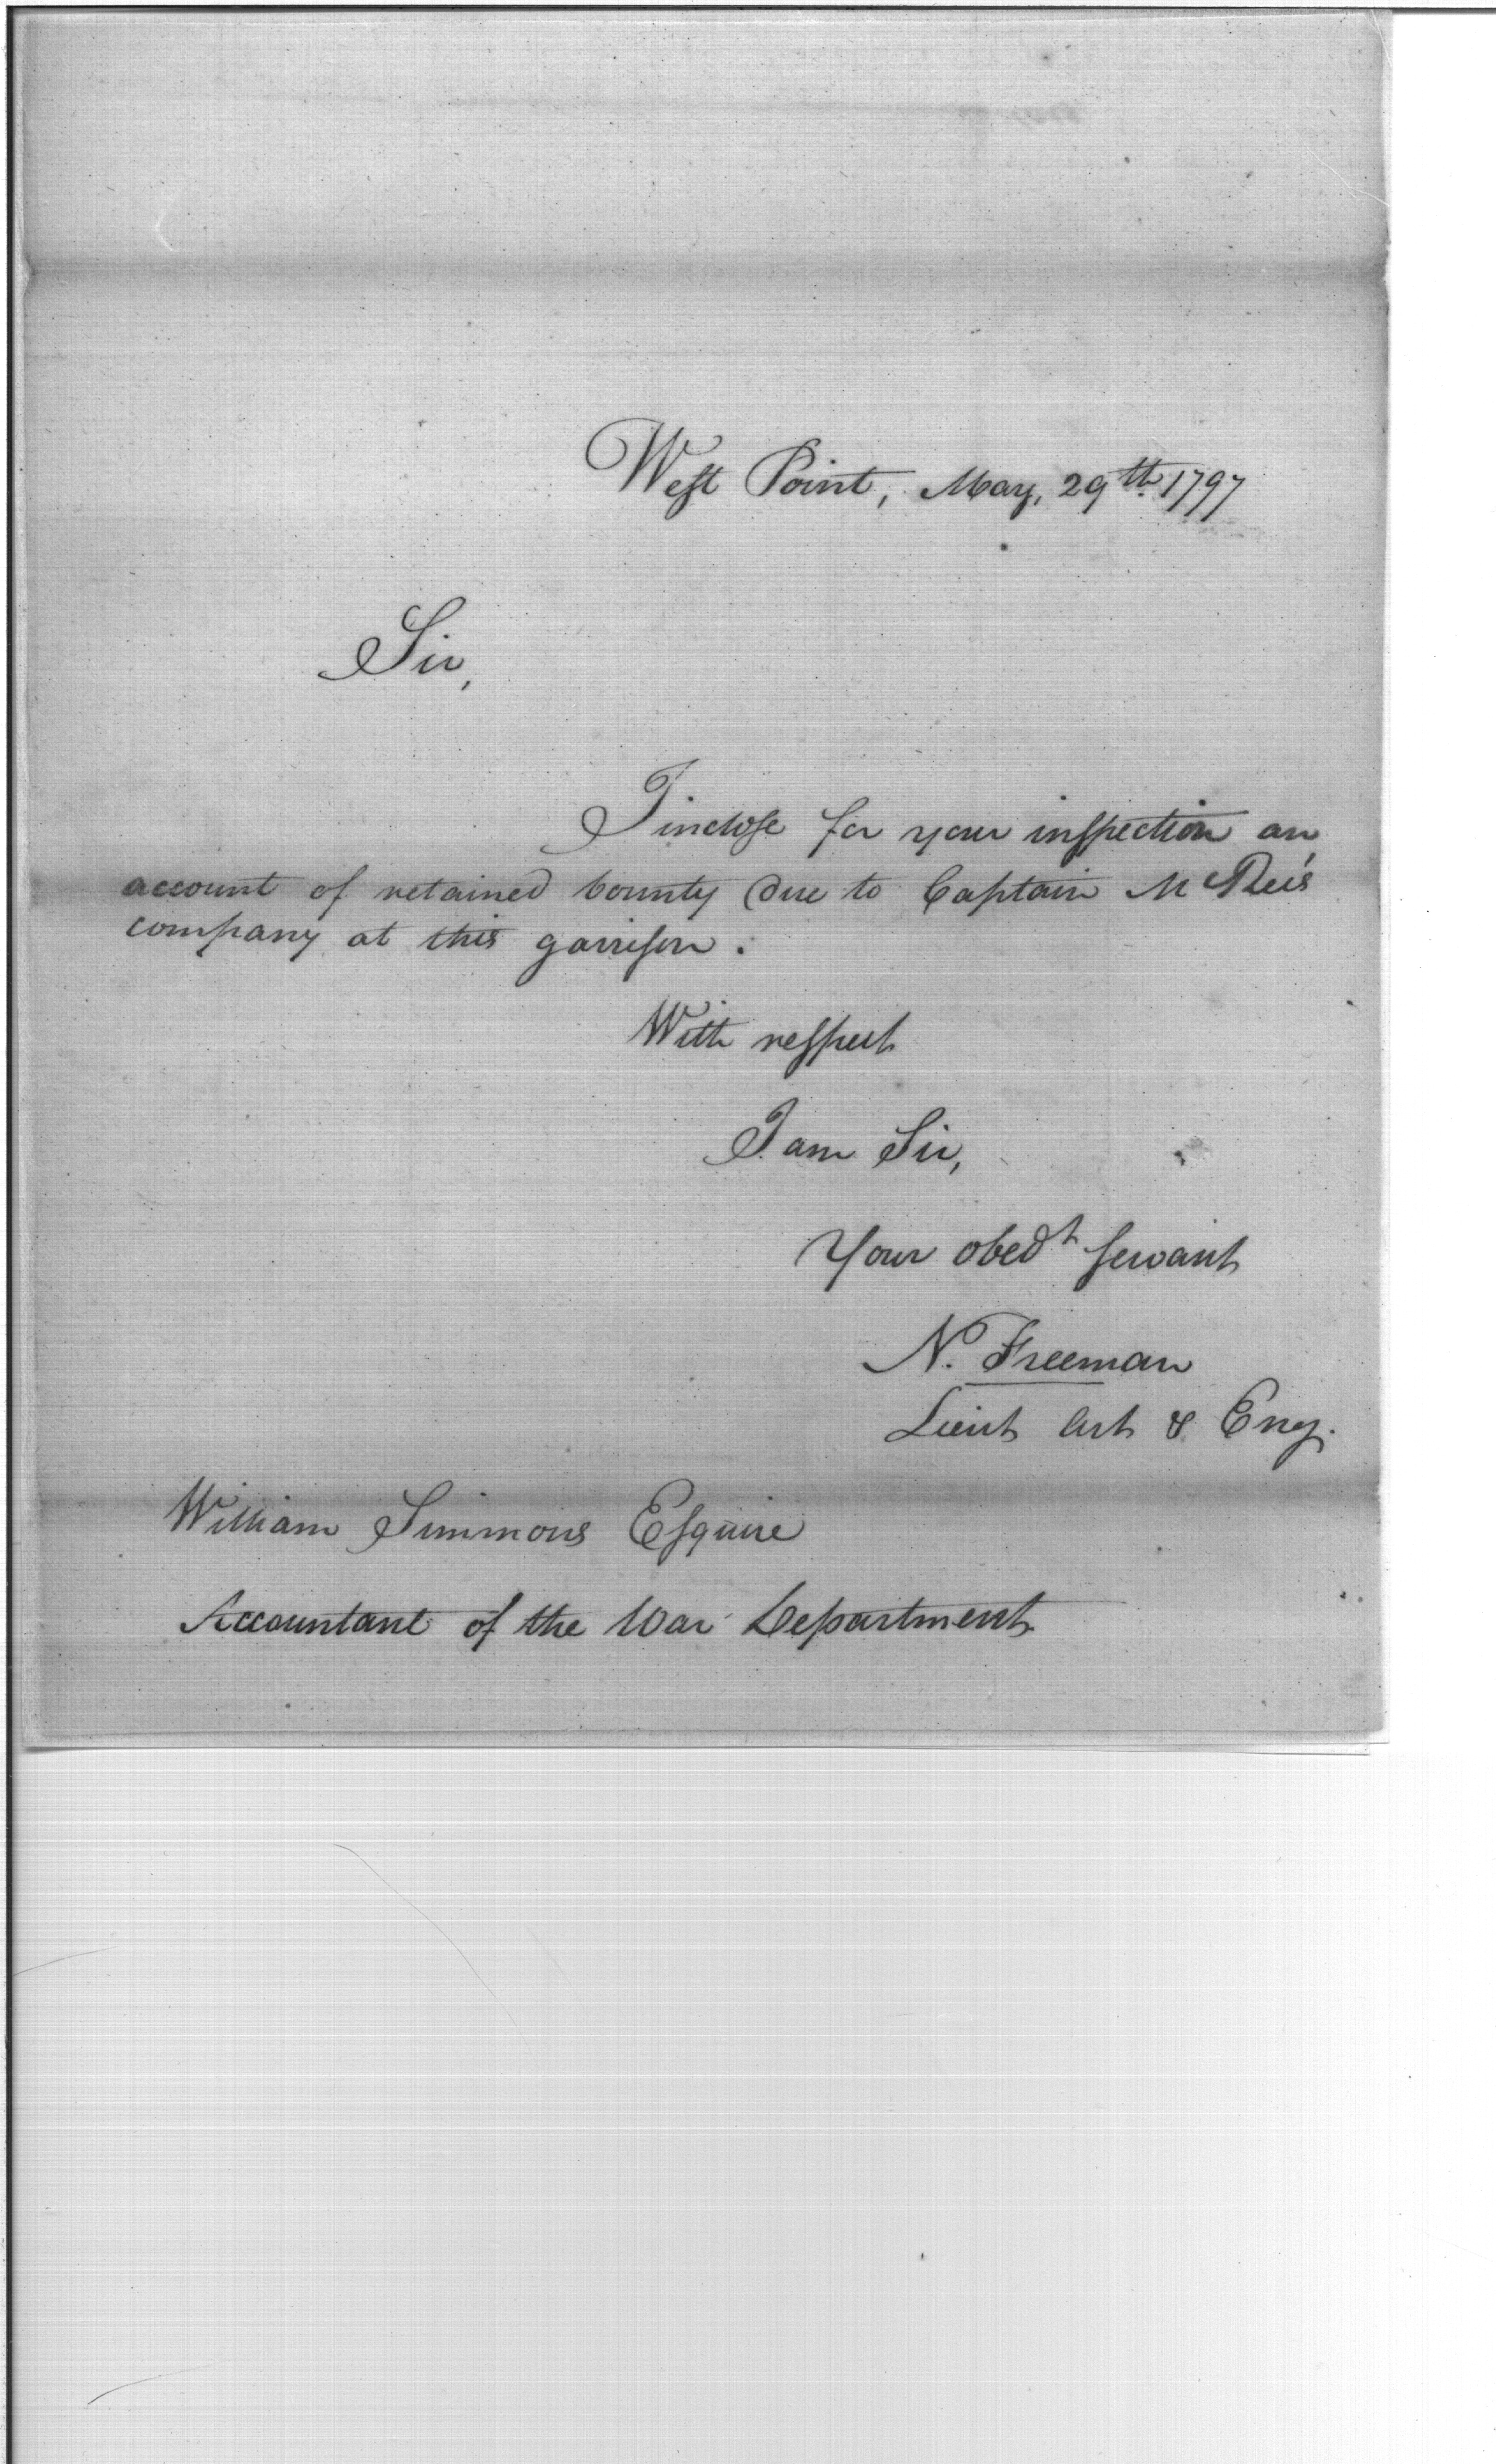 West Point, May, 29th 1797
Sir,
I inclose for your inspection an
account of retained bounty due to Captain M Ree's
company at this garrison.
With respect
I am Sir,
Your obedt servant
N. Freeman
Lieut Art & Eng.
William Simmons Esquire
Accountant of the War Department